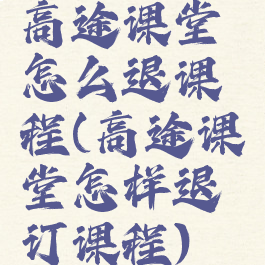 高途课堂
怎么退课
程(高途课
堂怎样退
订课程)